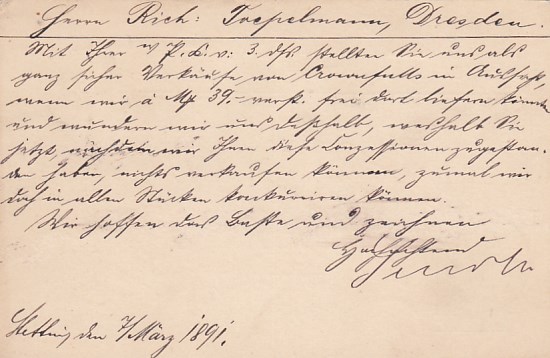 Herrn Rich: Toepelmann, Dresden.
Mit Ihrer w P. K. v. 3. dfs. stellten Sie uns als
ganz sicher Verkäufe von Crownfulls in Aussicht,
wenn wir à Mk 39.- verst. frei dort liefern könnten
und wundern wir uns deßhalb, weshalb Sie
jetzt, nachdem wir Ihnen diese Conzessionen zugestan-
den haben, nichts verkaufen können, zumal wir
doch in allen Stücken konkurriren können.
Wir hoffen das Beste und zeichnen
Hochachtend
Stettin, den 7/März 1891.